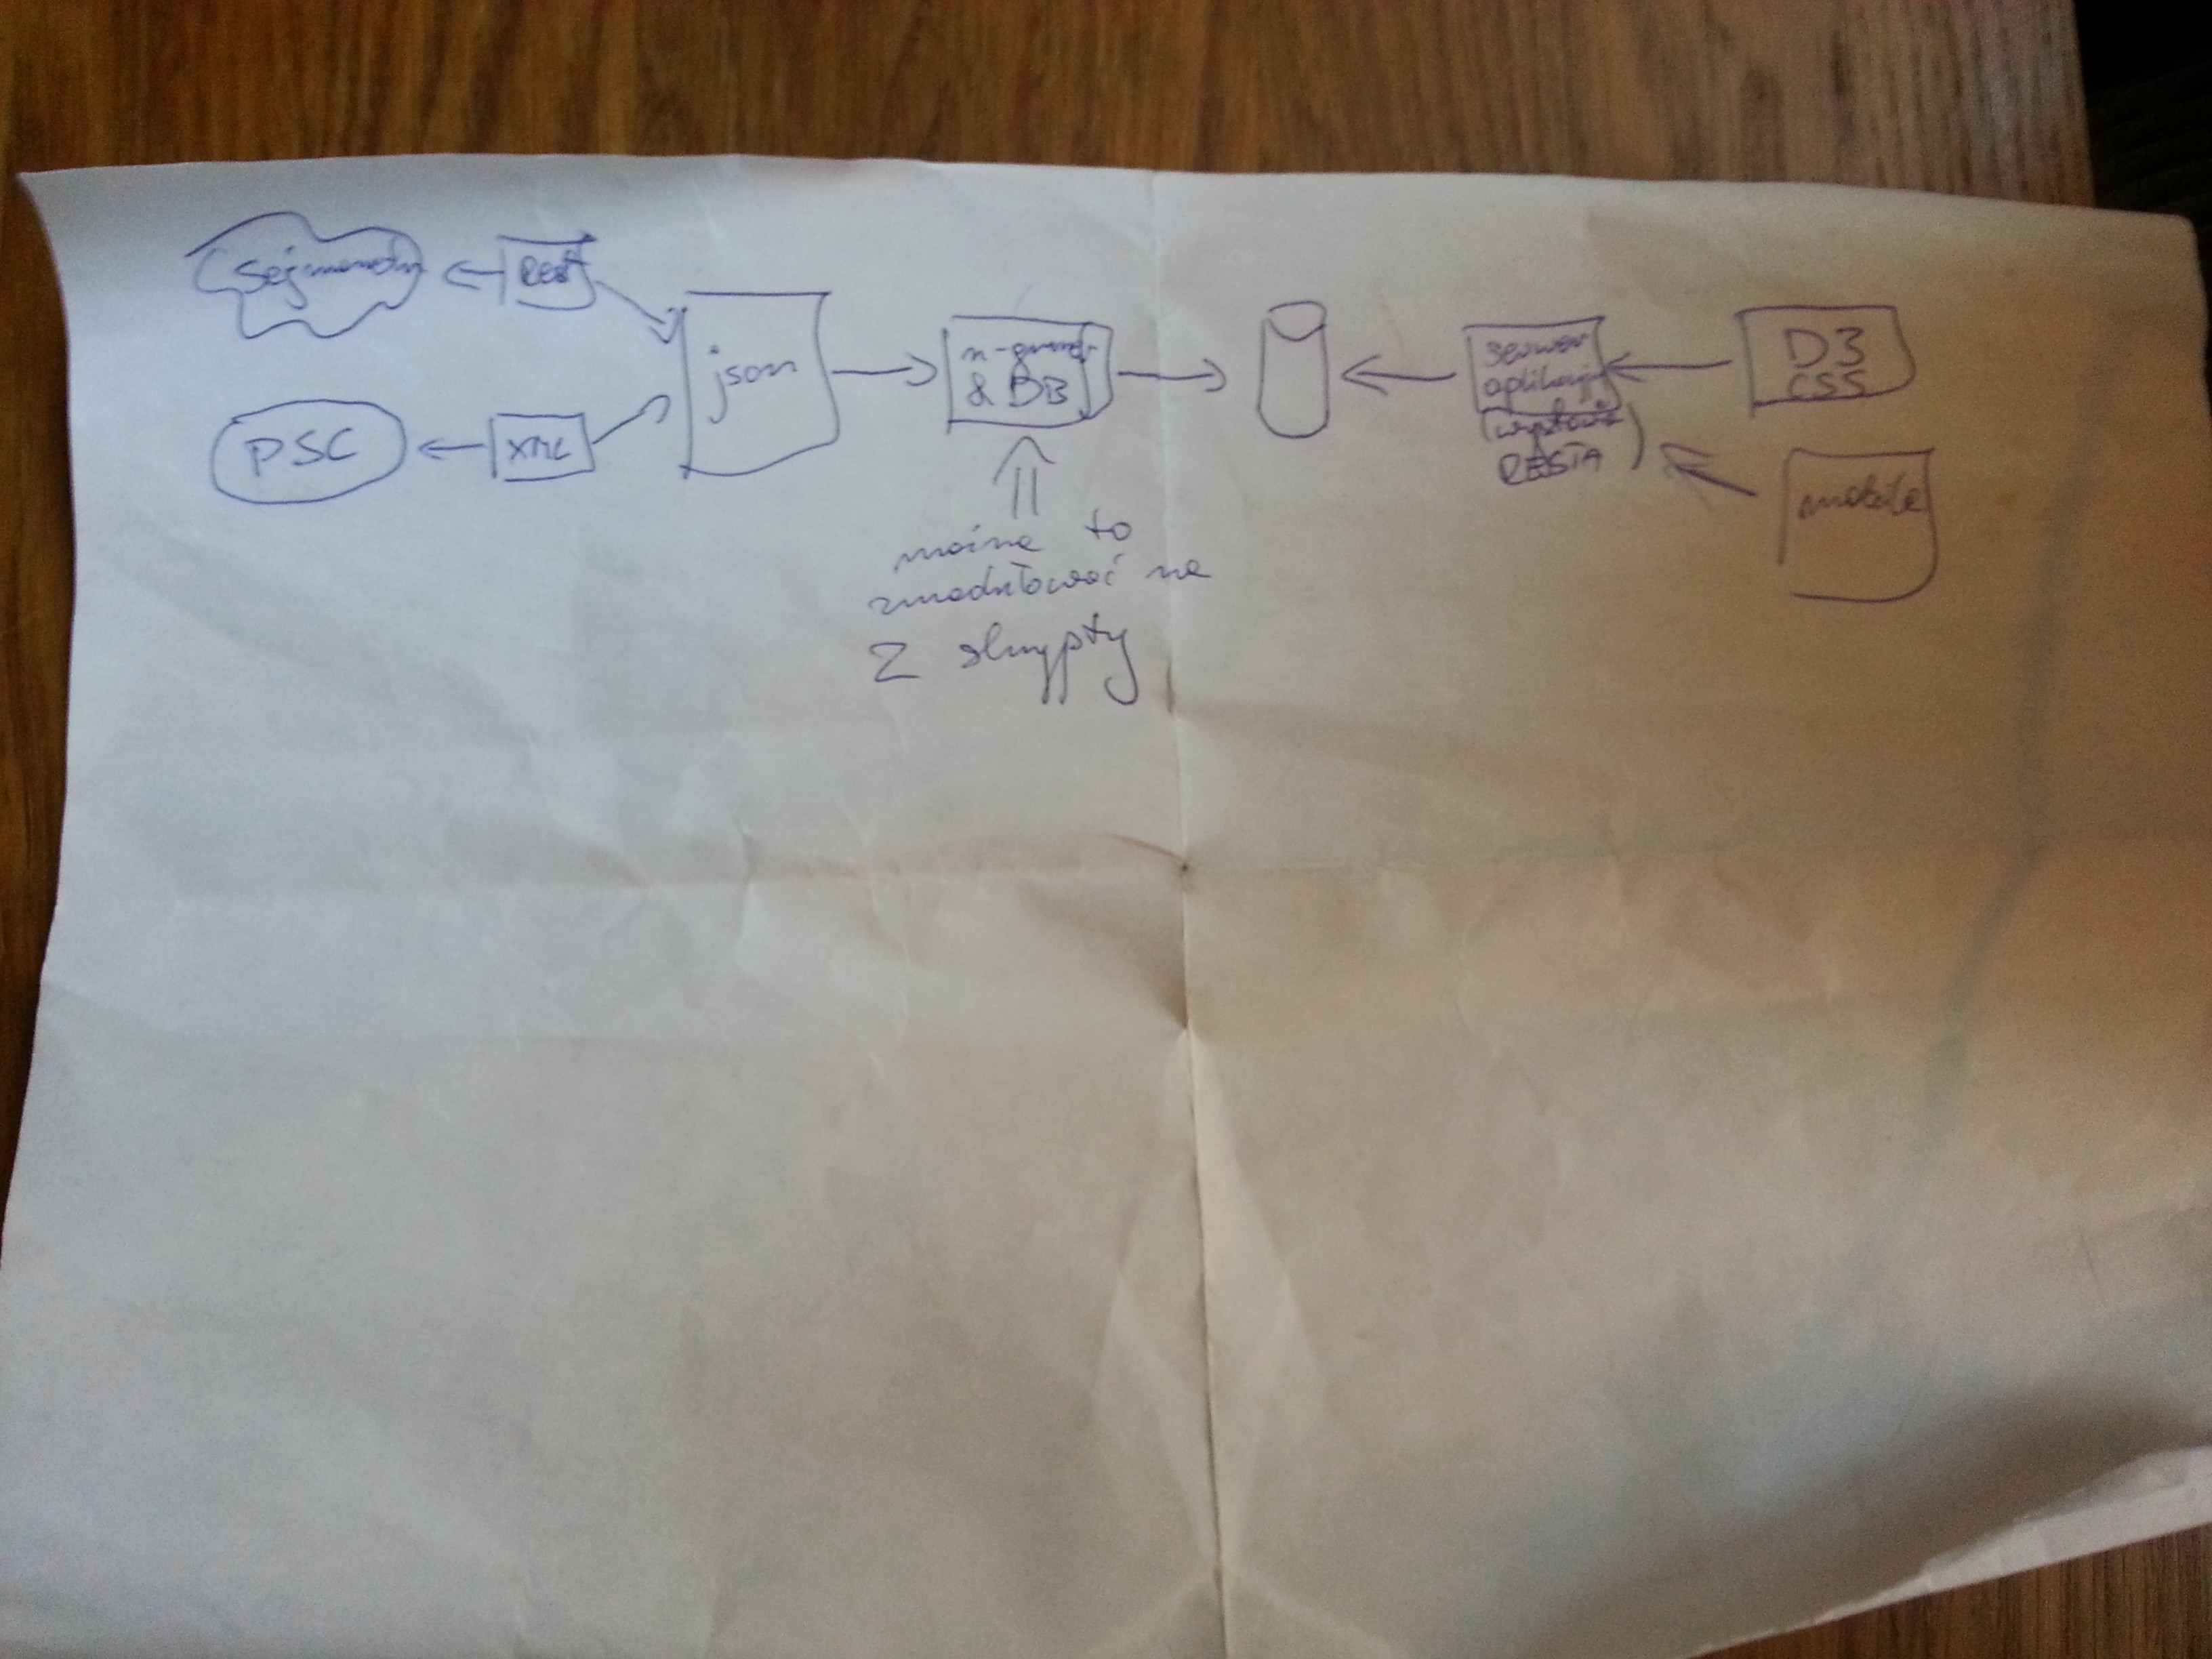 sejmometr
REST
PSC
XML
json
n-gramy
& DB
można to
zmodyfikować na
2 skrypty
serwer
aplikacji
(wystawia
RESTA)
D3
CSS
mobile